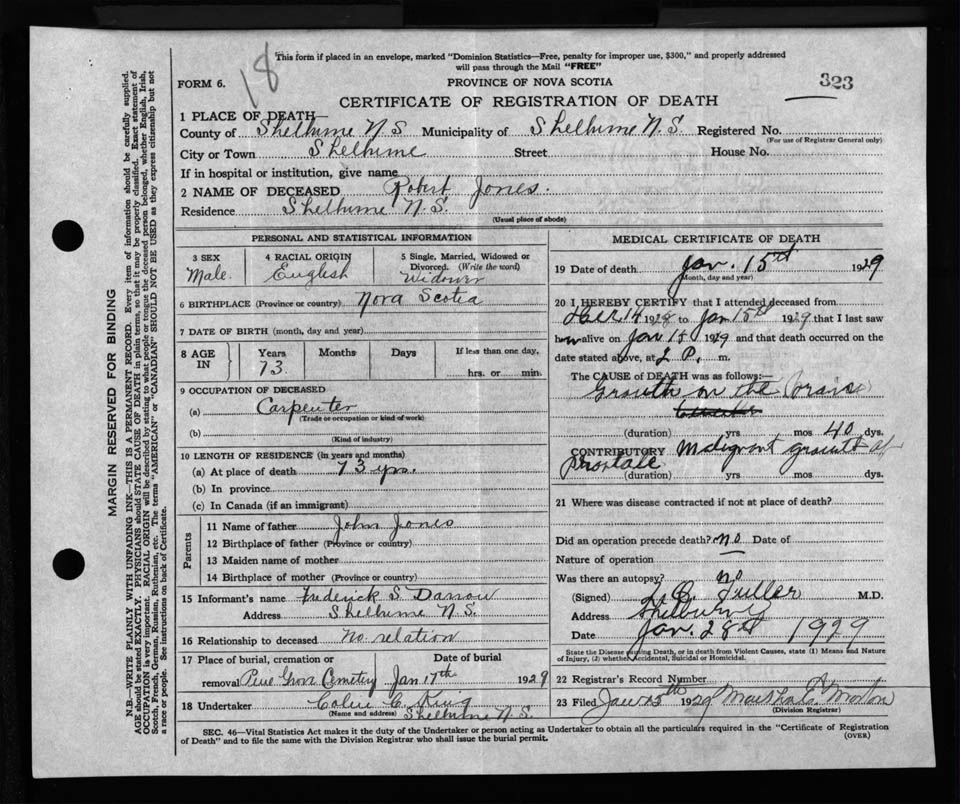 18
This form if placed in an envelope, marked "Dominion Statistics—Free, penalty for improper use, $300," and properly addressed
will pass through the Mail "FREE"
FORM 6.
PROVINCE OF NOVA SCOTIA
323
CERTIFICATE OF REGISTRATION OF DEATH
1 PLACE OF DEATH—
County of Shelburne N S Municipality of Shelburne N.S. Registered No.
(For use of Registrar General only)
City or Town Shelburne Street House No.
If in hospital or institution, give name
2 NAME OF DECEASED Robert Jones.
Residence Shelburne N.S.
(Usual place of abode)
PERSONAL AND STATISTICAL INFORMATION
3 SEX 4 RACIAL ORIGIN 5 Single, Married, Widowed or
Divorced. (Write the word)
Male. English Widower
6 BIRTHPLACE (Province or country) Nova Scotia
7 DATE OF BIRTH (month, day and year)
8 AGE IN Years Months Days If less than one day,
73. hrs. or min.
9 OCCUPATION OF DECEASED
(a) Carpenter
(Trade or occupation or kind of work)
(b)
(Kind of industry)
10 LENGTH OF RESIDENCE (in years and months)
(a) At place of death 73 yrs.
(b) In province
(c) In Canada (if an immigrant)
Parents
11 Name of father John Jones
12 Birthplace of father (Province or country)
13 Maiden name of mother
14 Birthplace of mother (Province or country)
15 Informant's name Frederick S. Darrow
Address Shelburne N.S.
16 Relationship to deceased No relation
17 Place of burial, cremation or Date of burial
removal Pine Grove Cemetery Jan 17th 1929
18 Undertaker Colin C. King
(Name and address) Shelburne N.S.
MEDICAL CERTIFICATE OF DEATH
19 Date of death Jan. 15th 1929
(Month, day and year)
20 I HEREBY CERTIFY that I attended deceased from
Dec. 14 1928 to Jan 15th 1929 that I last saw
him alive on Jan 15 1929 and that death occurred on the
date stated above, at 2 P. m.
The CAUSE of DEATH was as follows:—
Growth on the brain
(duration) yrs mos 40 dys.
CONTRIBUTORY Malignant growth of
prostate
(duration) yrs mos dys.
21 Where was disease contracted if not at place of death?
Did an operation precede death? no Date of
Nature of operation
Was there an autopsy? no
(Signed) Fuller M.D.
Address Shelburne
Date Jan. 28th 1929
State the Disease causing Death, or in death from Violent Causes, state (1) Means and Nature
of Injury, (2) whether Accidental, Suicidal or Homicidal.
22 Registrar's Record Number
23 Filed 1929 Morton
(Division Registrar)
SEC. 46—Vital Statistics Act makes it the duty of the Undertaker or person acting as Undertaker to obtain all the particulars required in the "Certificate of Registration
of Death" and to file the same with the Division Registrar who shall issue the burial permit.
(OVER)
MARGIN RESERVED FOR BINDING
N.B.—WRITE PLAINLY WITH UNFADING INK—THIS IS A PERMANENT RECORD. Every item of information should be carefully supplied.
AGE should be stated EXACTLY. PHYSICIANS should STATE CAUSE OF DEATH in plain terms, so that it may be properly classified. Exact statement of
OCCUPATION is very important. RACIAL ORIGIN will be described by stating to what people or tongue the deceased person belonged, whether English, Irish,
Scotch, French, German, Russian, Ruthenian, etc. The terms "AMERICAN" or "CANADIAN" SHOULD NOT BE USED as they express citizenship but not
a race or people. See instructions on back of Certificate.